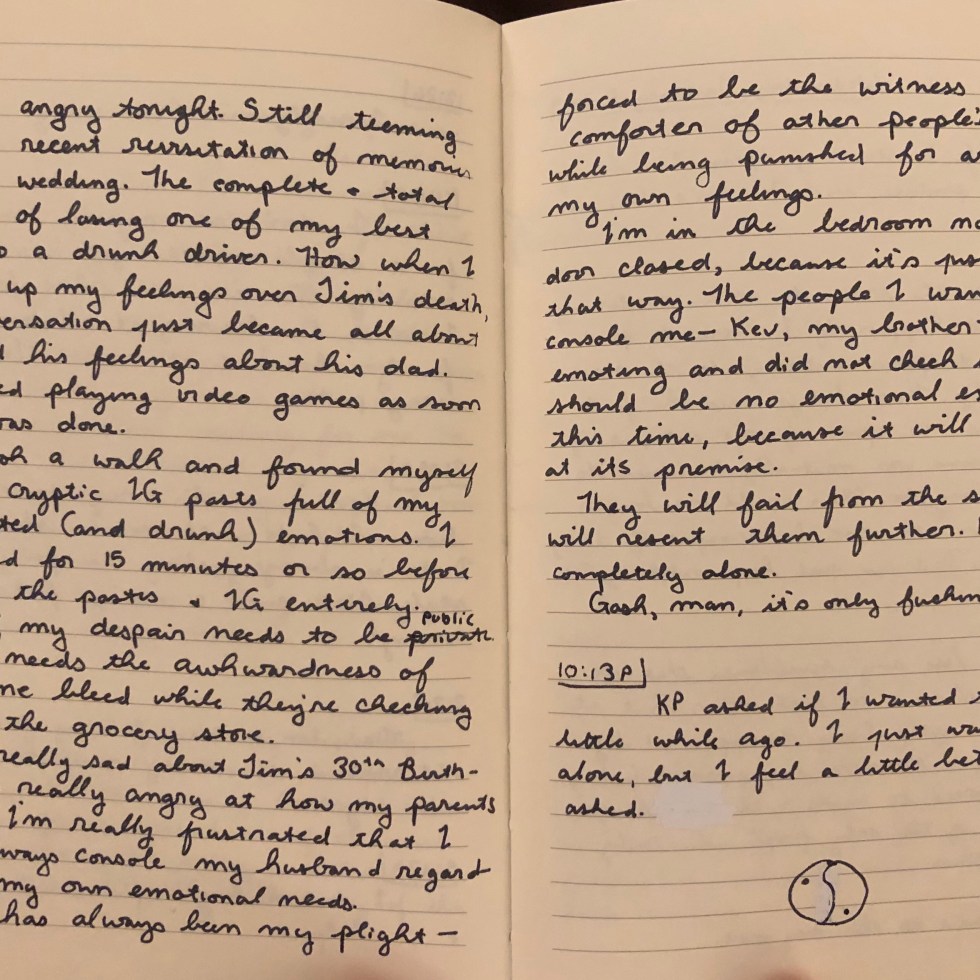 angry tonight. Still teeming
recent revisitation of memories
wedding. The complete + total
of losing one of my best
o a drunk driver. How when I
up my feelings over Jim's death,
ersation just became all about
his feelings about his dad.
ed playing video games as soon
was done.
a walk and found myself
cryptic IG posts full of my
ted (and drunk) emotions. I
d for 15 minutes or so before
the posts + IG entirely.
my despair needs to be public private.
needs the awkwardness of
me bleed while they're checking
the grocery store.
really sad about Jim's 30th Birth-
really angry at how my parents
I'm really frustrated that I
ways console my husband regard
my own emotional needs.
has always been my plight —
forced to be the witness
comforter of other people's
while being punished for
my own feelings.
I'm in the bedroom
door closed, because it's
that way. The people I
console me— Kev, my brother
emoting and did not check
should be no emotional
this time, because it will
at its premise.
They will fail from the
will resent them further.
completely alone.
Gosh, man, it's only
10:13P
KP asked if I wanted
little while ago. I just
alone, but I feel a little
asked.